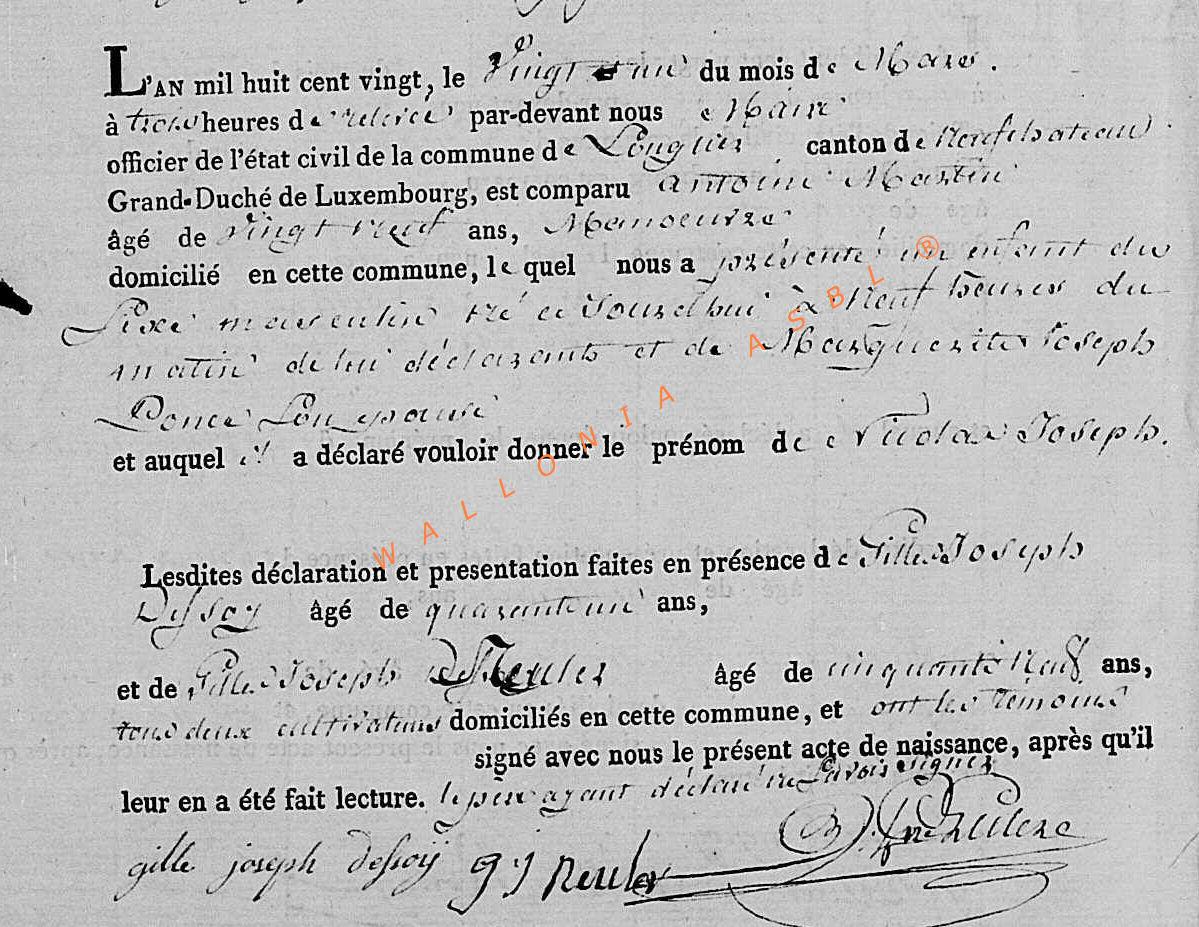 L'AN mil huit cent vingt, le vingt un du mois de Mars.
à trois heures de relevée par-devant nous Maire
officier de l'état civil de la commune de Longlier, canton de Neufchateau
Grand-Duché de Luxembourg, est comparu antoine Martin
âgé de vingt neuf ans, Manoeuvre
domicilié en cette commune, lequel nous a présenté un enfant du
Sexe masculin né ce Jourdhui à neuf heures du
matin de lui déclarant et de Marguerite Joseph
Ponce Son epouse
et auquel il a déclaré vouloir donner le prénom de Nicolas Joseph.
Lesdites déclaration et presentation faites en présence de Gille Joseph
Dessoy âgé de quarante un ans,
et de Gille Joseph âgé de cinquante neuf ans,
tous deux cultivateurs domiciliés en cette commune, et ont les temoins
signé avec nous le présent acte de naissance, après qu'il
leur en a été fait lecture. le père ayant déclaré ne savoir signer
gille joseph dessoÿ g j
WALLONIA ASBL ®